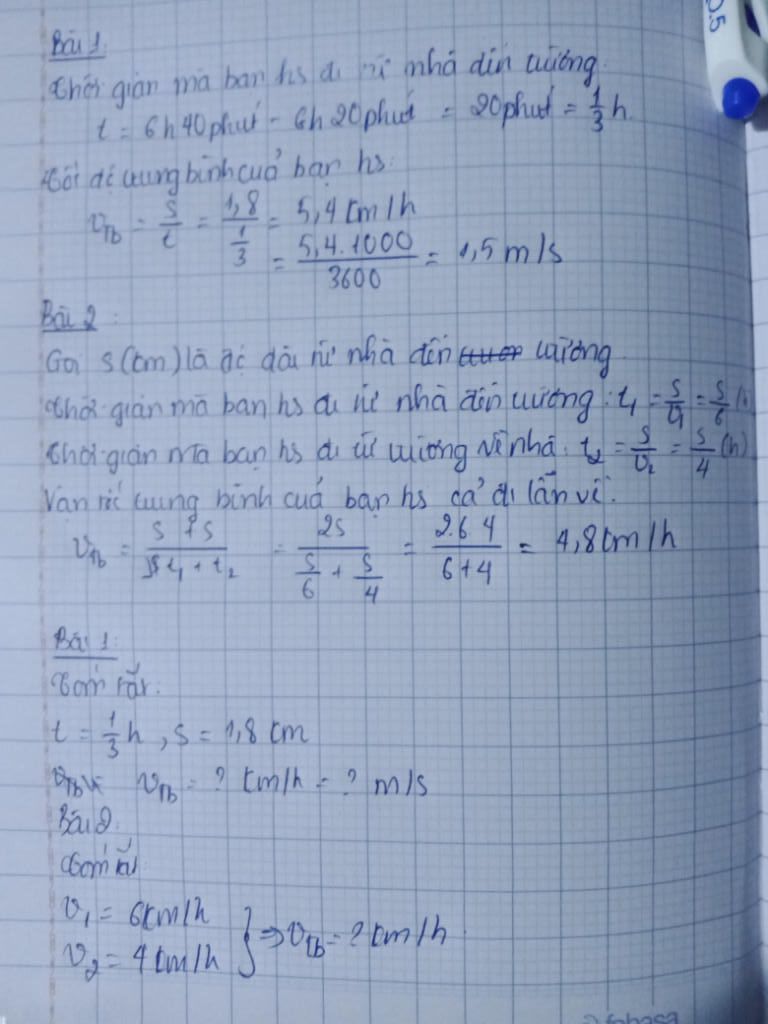 0.5
Bài 1
Thời gian mà bạn hs đi từ nhà đến trường.
t = 6h40phút - 6h20phút = 20phút = 1/3 h.
Tốc độ trung bình của bạn hs:
vTb = s/t = 1,8/(1/3) = 5,4 km/h
= 5,4.1000/3600 = 1,5 m/s
Bài 2:
Gọi s(km) là độ dài từ nhà đến trường
Thời gian mà bạn hs đi từ nhà đến trường: t1 = s/v1 = s/6 (h)
Thời gian mà bạn hs đi từ trường về nhà: t2 = s/v2 = s/4 (h)
Vận tốc trung bình của bạn hs cả đi lẫn về:
vTb = (s + s)/(t1 + t2) = 2s/(s/6 + s/4) = 2.6 4/(6+4) = 4,8km/h
Bài 1:
Tóm tắt:
t = 1/3 h, s = 1,8 km
vTb = ? km/h = ? m/s
Bài 2.
Tóm tắt
v1 = 6km/h
v2 = 4km/h } ⇒ vTb = ? km/h.
fahasa